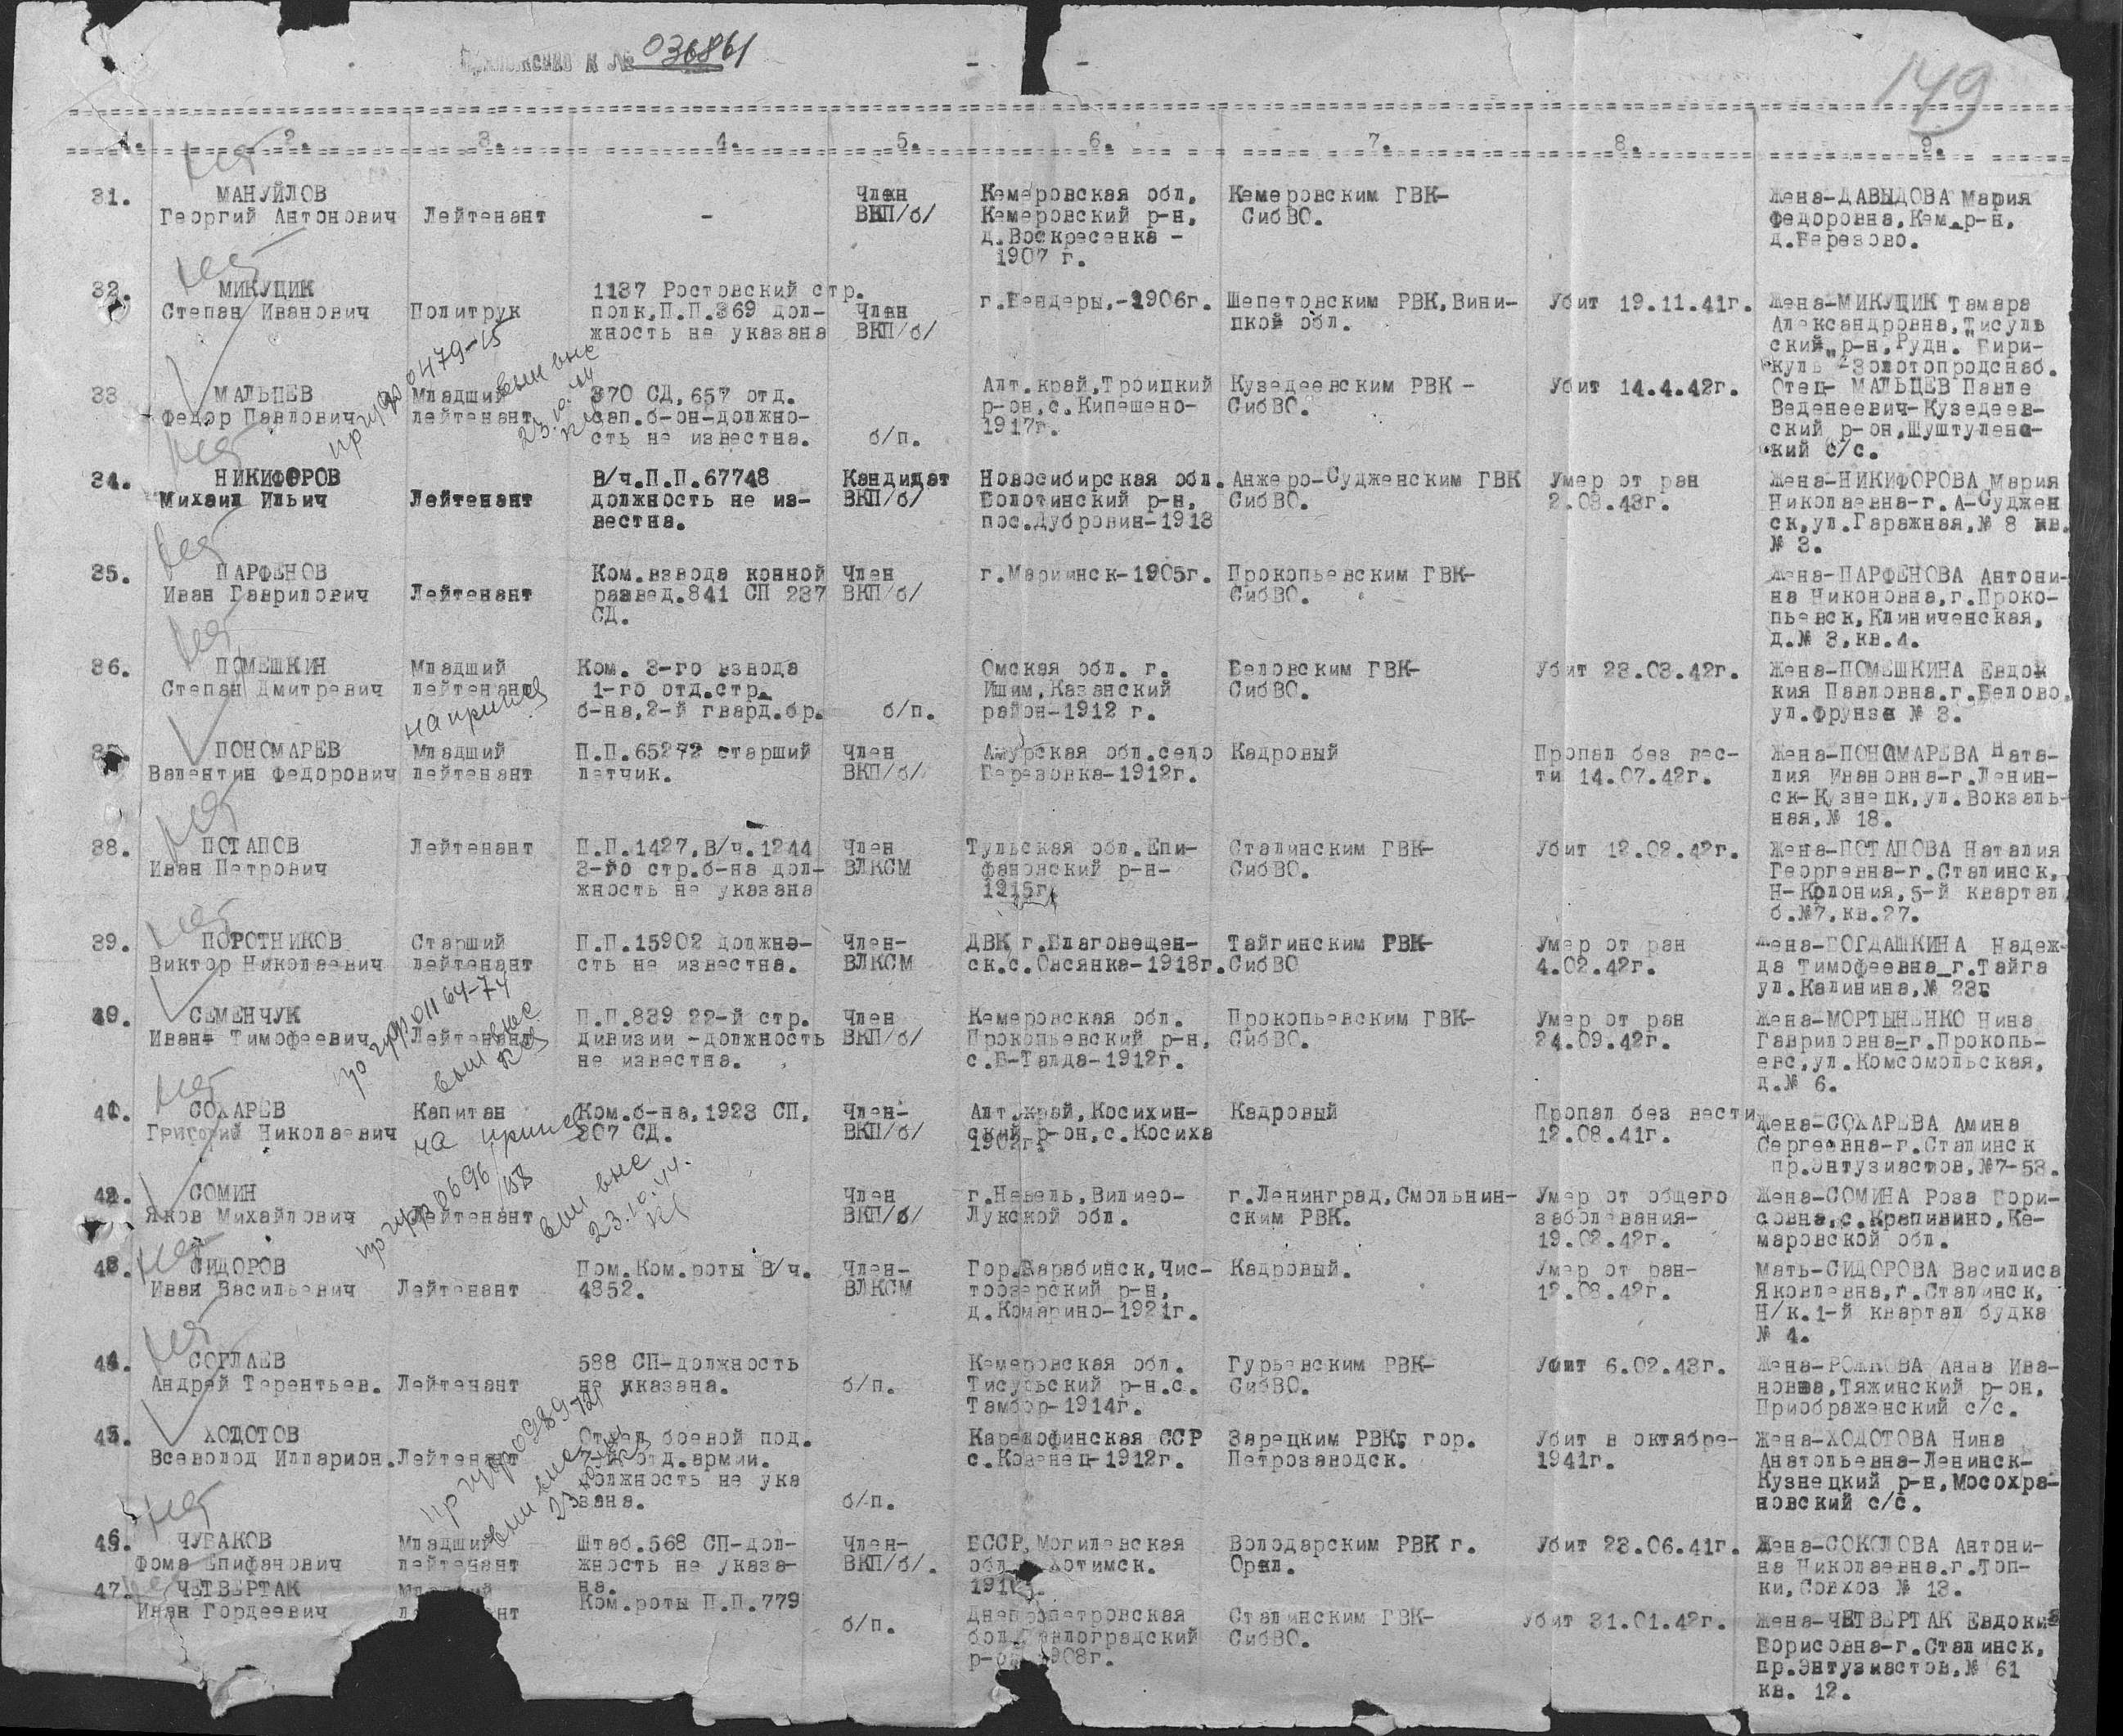 Приложение к № 036861
149
1. 2. 3. 4. 5. 6. 7. 8. 9.
нет
31. МАНУЙЛОВ
Георгий Антонович
Лейтенант
-
Член
ВКП/б/
Кемеровская обл.
Кемеровский р-н,
д.Воскресенка -
1907 г.
Кемеровским ГВК-
СибВО.
Жена-ДАВЫДОВА Мария
федоровна,Кем.р-н,
д.Березово.
нет
32. МИКУЦИК
Степан Иванович
Политрук
1137 Ростовский стр.
полк,П.П.369 дол-
жность не указана
Член
ВКП/б/
г.Бендеры,-1906г.
Шепетовским РВК,Вини-
цкой обл.
Убит 19.11.41г.
Жена-МИКУЦИК Тамара
Александровна,Тисуль
ский р-н,Рудн."Бири-
куль"-Золотопродснаб.
33 МАЛЬЦЕВ
Федор Павлович
Младший
лейтенант
пр гуфр 0479-15
выш выс
23.10.44
370 СД,657 отд.
сап.б-он-должно-
сть не известна.
б/п.
Алт.край,Троицкий
р-он,с.Кипешено-
1917г.
Кузедеевским РВК -
СибВО.
Убит 14.4.42г.
Отец- МАЛЬЦЕВ Павле
Веденеевич-Кузедеев-
ский р-он,Шуштулепс-
кий с/с.
нет
34. НИКИФОРОВ
Михаил Ильич
Лейтенант
В/ч.П.П.67748
должность не из-
вестна.
Кандидат
ВКП/б/
Новосибирская обл.
Болотинский р-н,
пос.Дубровин-1913
Анжеро-Судженским ГВК
СибВО.
Умер от ран
2.03.43г.
Жена-НИКИФОРОВА Мария
Николаевна-г.А-Суджен
ск,ул.Гаражная,№ 8 кв.
№ 3.
нет
35. ПАРФЕНОВ
Иван Гаврилович
Лейтенант
Ком.взвода конной
развед.841 СП 237
СД.
Член
ВКП/б/
г.Мариинск-1905г.
Прокопьевским ГВК-
СибВО.
Жена-ПАРФЕНОВА Антони-
на Никоновна,г.Проко-
пьевск,Клиниченская,
д.№ 3,кв.4.
нет
36. ПОМЕШКИН
Степан Дмитревич
Младший
лейтенант
на приказ
Ком. 3-го взвода
1-го отд.стр.
б-на,2-й гвард.бр.
б/п.
Омская обл. г.
Ишим,Казанский
район-1912 г.
Беловским ГВК-
СибВО.
Убит 23.03.42г.
Жена-ПОМЕШКИНА Евдок
кия Павловна.г.Белово.
ул.Фрунзе № 3.
37. ПОНОМАРЕВ
Валентин Федорович
Младший
лейтенант
П.П.65272 старший
летчик.
Член
ВКП/б/
Амурская обл.село
Березовка-1912г.
Кадровый
Пропал без вес-
ти 14.07.42г.
Жена-ПОНОМАРЕВА Ната-
лия Ивановна-г.Ленин-
ск-Кузнецк,ул.Вокзаль-
ная,№ 18.
нет
38. ПОТАПОВ
Иван Петрович
Лейтенант
П.П.1427,В/ч.1244
3-го стр.б-на дол-
жность не указана
Член
ВЛКСМ
Тульская обл.Епи-
фановский р-н-
1915г.
Сталинским ГВК-
СибВО.
Убит 12.02.42г.
Жена-ПОТАПОВА Наталия
Георгевна-г.Сталинск,
Н-Колония,5-й квартал
б.№7,кв.27.
нет
39. ПОРОТНИКОВ
Виктор Николаевич
Старший
лейтенант
П.П.15902 должно-
сть не известна.
Член-
ВЛКСМ
ДВК г.Благовещен-
ск.с.Овсянка-1918г.
Тайгинским РВК-
СибВО
Умер от ран
4.02.42г.
Жена-БОГДАШКИНА Надеж-
да Тимофеевна-г.Тайга
ул.Калинина,№ 23г
40. СЕМЕНЧУК
Иван Тимофеевич
Лейтенант
пр гуфр 01164-74
выш выс
П.П.839 22-й стр.
дивизии -должность
не известна.
Член
ВКП/б/
Кемеровская обл.
Прокопьевский р-н,
с.Б-Талда-1912г.
Прокопьевским ГВК-
СибВО.
Умер от ран
24.09.42г.
Жена-МОРТЫНЕНКО Нина
Гавриловна-г.Прокопь-
евс,ул.Комсомольская,
д.№ 6.
нет
41. СОХАРЕВ
Григорий Николаевич
Капитан
на приказ
Ком.б-на,1923 СП,
307 СД.
Член-
ВКП/б/
Алт.край,Косихин-
ский р-он,с.Косиха
1902г.
Кадровый
Пропал без вести
12.08.41г.
Жена-СОХАРЕВА Амина
Сергеевна-г.Сталинск
пр.Энтузиастов,№7-53.
42. СОМИН
Яков Михайлович
Лейтенант
пр гуфр 0696/158
выш выс
23.10.44.
Член
ВКП/б/
г.Невель,Вилико-
Лукской обл.
г.Ленинград,Смольнин-
ским РВК.
Умер от общего
заболевания-
19.02.42г.
Жена-СОМИНА Роза Бори-
совна,с.Крапивино,Ке-
маровской обл.
нет
43. СИДОРОВ
Иван Васильевич
Лейтенант
Пом.Ком.роты В/ч.
4852.
Член-
ВЛКСМ
Гор.Барабинск,Чис-
тоозерский р-н,
д.Комарино-1921г.
Кадровый.
Умер от ран-
12.08.42г.
Мать-СИДОРОВА Василиса
Яковлевна,г.Сталинск,
Н/к.1-й квартал будка
№ 4.
нет
44. СОГЛАЕВ
Андрей Терентьев.
Лейтенант
588 СП-должность
не указана.
б/п.
Кемеровская обл.
Тисульский р-н.с.
Тамбор-1914г.
Гурьевским РВК-
СибВО.
Убит 6.02.43г.
Жена-РОЖКОВА Анна Ива-
новна,Тяжинский р-он,
Приображенский с/с.
45. ХОДОТОВ
Всеволод Илларион.
Лейтенант
пр гуфр 0989-121
выш выс
Отдел боевой под.
7-й отд.армии.
должность не ука
зана.
б/п.
Карелофинская ССР
с.Ковенец-1912г.
Зарецким РВК, гор.
Петрозаводск.
Убит в октябре-
1941г.
Жена-ХОДОТОВА Нина
Анатольевна-Ленинск-
Кузнецкий р-н,Мосохра-
новский с/с.
нет
46. ЧУБАКОВ
Фома Епифанович
Младший
лейтенант
Штаб.568 СП-дол-
жность не указа-
на.
Член-
ВКП/б/.
БССР,Могилевская
обл. Хотимск.
Володарским РВК г.
Орел.
Убит 23.06.41г.
Жена-СОКОЛОВА Антони-
на Николаевна.г.Топ-
ки,Совхоз № 13.
47. ЧЕТВЕРТАК
Иван Гордеевич
Ком.роты П.П.779
б/п.
Днепропетровская
бол.Павлоградский
1908г.
Сталинским ГВК-
СибВО.
Убит 31.01.42г.
Жена-ЧЕТВЕРТАК Евдокия
Борисовна-г.Сталинск,
пр.Энтузиастов,№ 61
кв. 12.